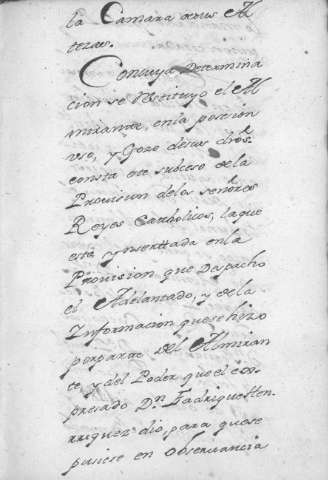 la Camara de sus Al
tezas.
Con cuya Determina
cion se Restituyo el Al
mirante, en la posesion
uso, y Gozo de sus dros.
consta este subceso de la
Provision de los señores
Reyes Catthólicos, la que
está ynserttada en la
Provision que Despacho
el Adelantado, y de la
Informacion que se hizo
por parte del Almiran
te, y del Poder que el ex
presado Dn. Fadrique Hen
rriquez dio, para que se
pusiese en Observancia